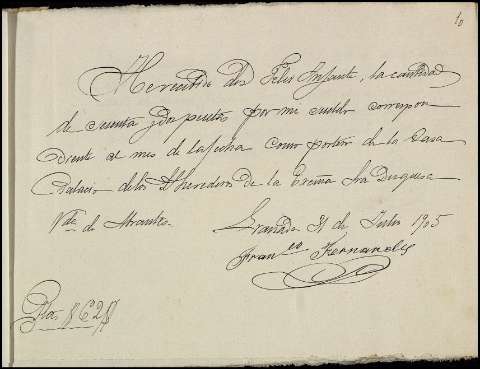 10
He recibido de D. Felix Infante, la cantidad
de sesenta y dos pesetas por mi sueldo correspon-
diente al mes de la fecha como portero de la Casa
Palacio de los Sres herederos de la Exma Sra Duquesa
Vda de Abrantes.
Granada 31 de Julio 1905
Franco Fernandez
Ptas 62